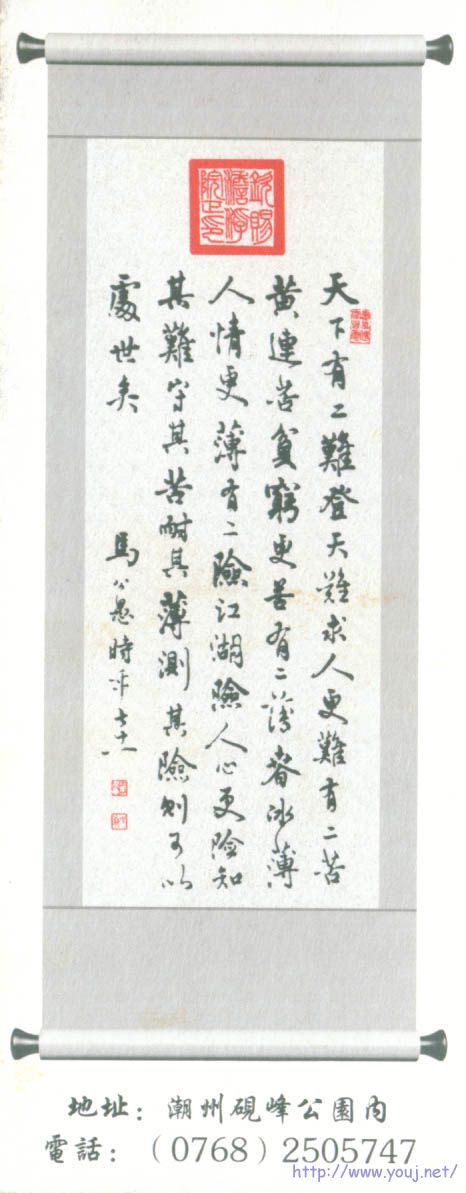 欽賜
澹浮
院之印
天下有二難登天難求人更難有二苦
黄連苦貧窮更苦有二薄春冰薄
人情更薄有二險江湖險人心更險知
其難守其苦耐其薄測其險則可以
處世矣
馬公愚時年
地址：潮州硯峰公園内
電話：（0768）2505747
http://www.youj.net/